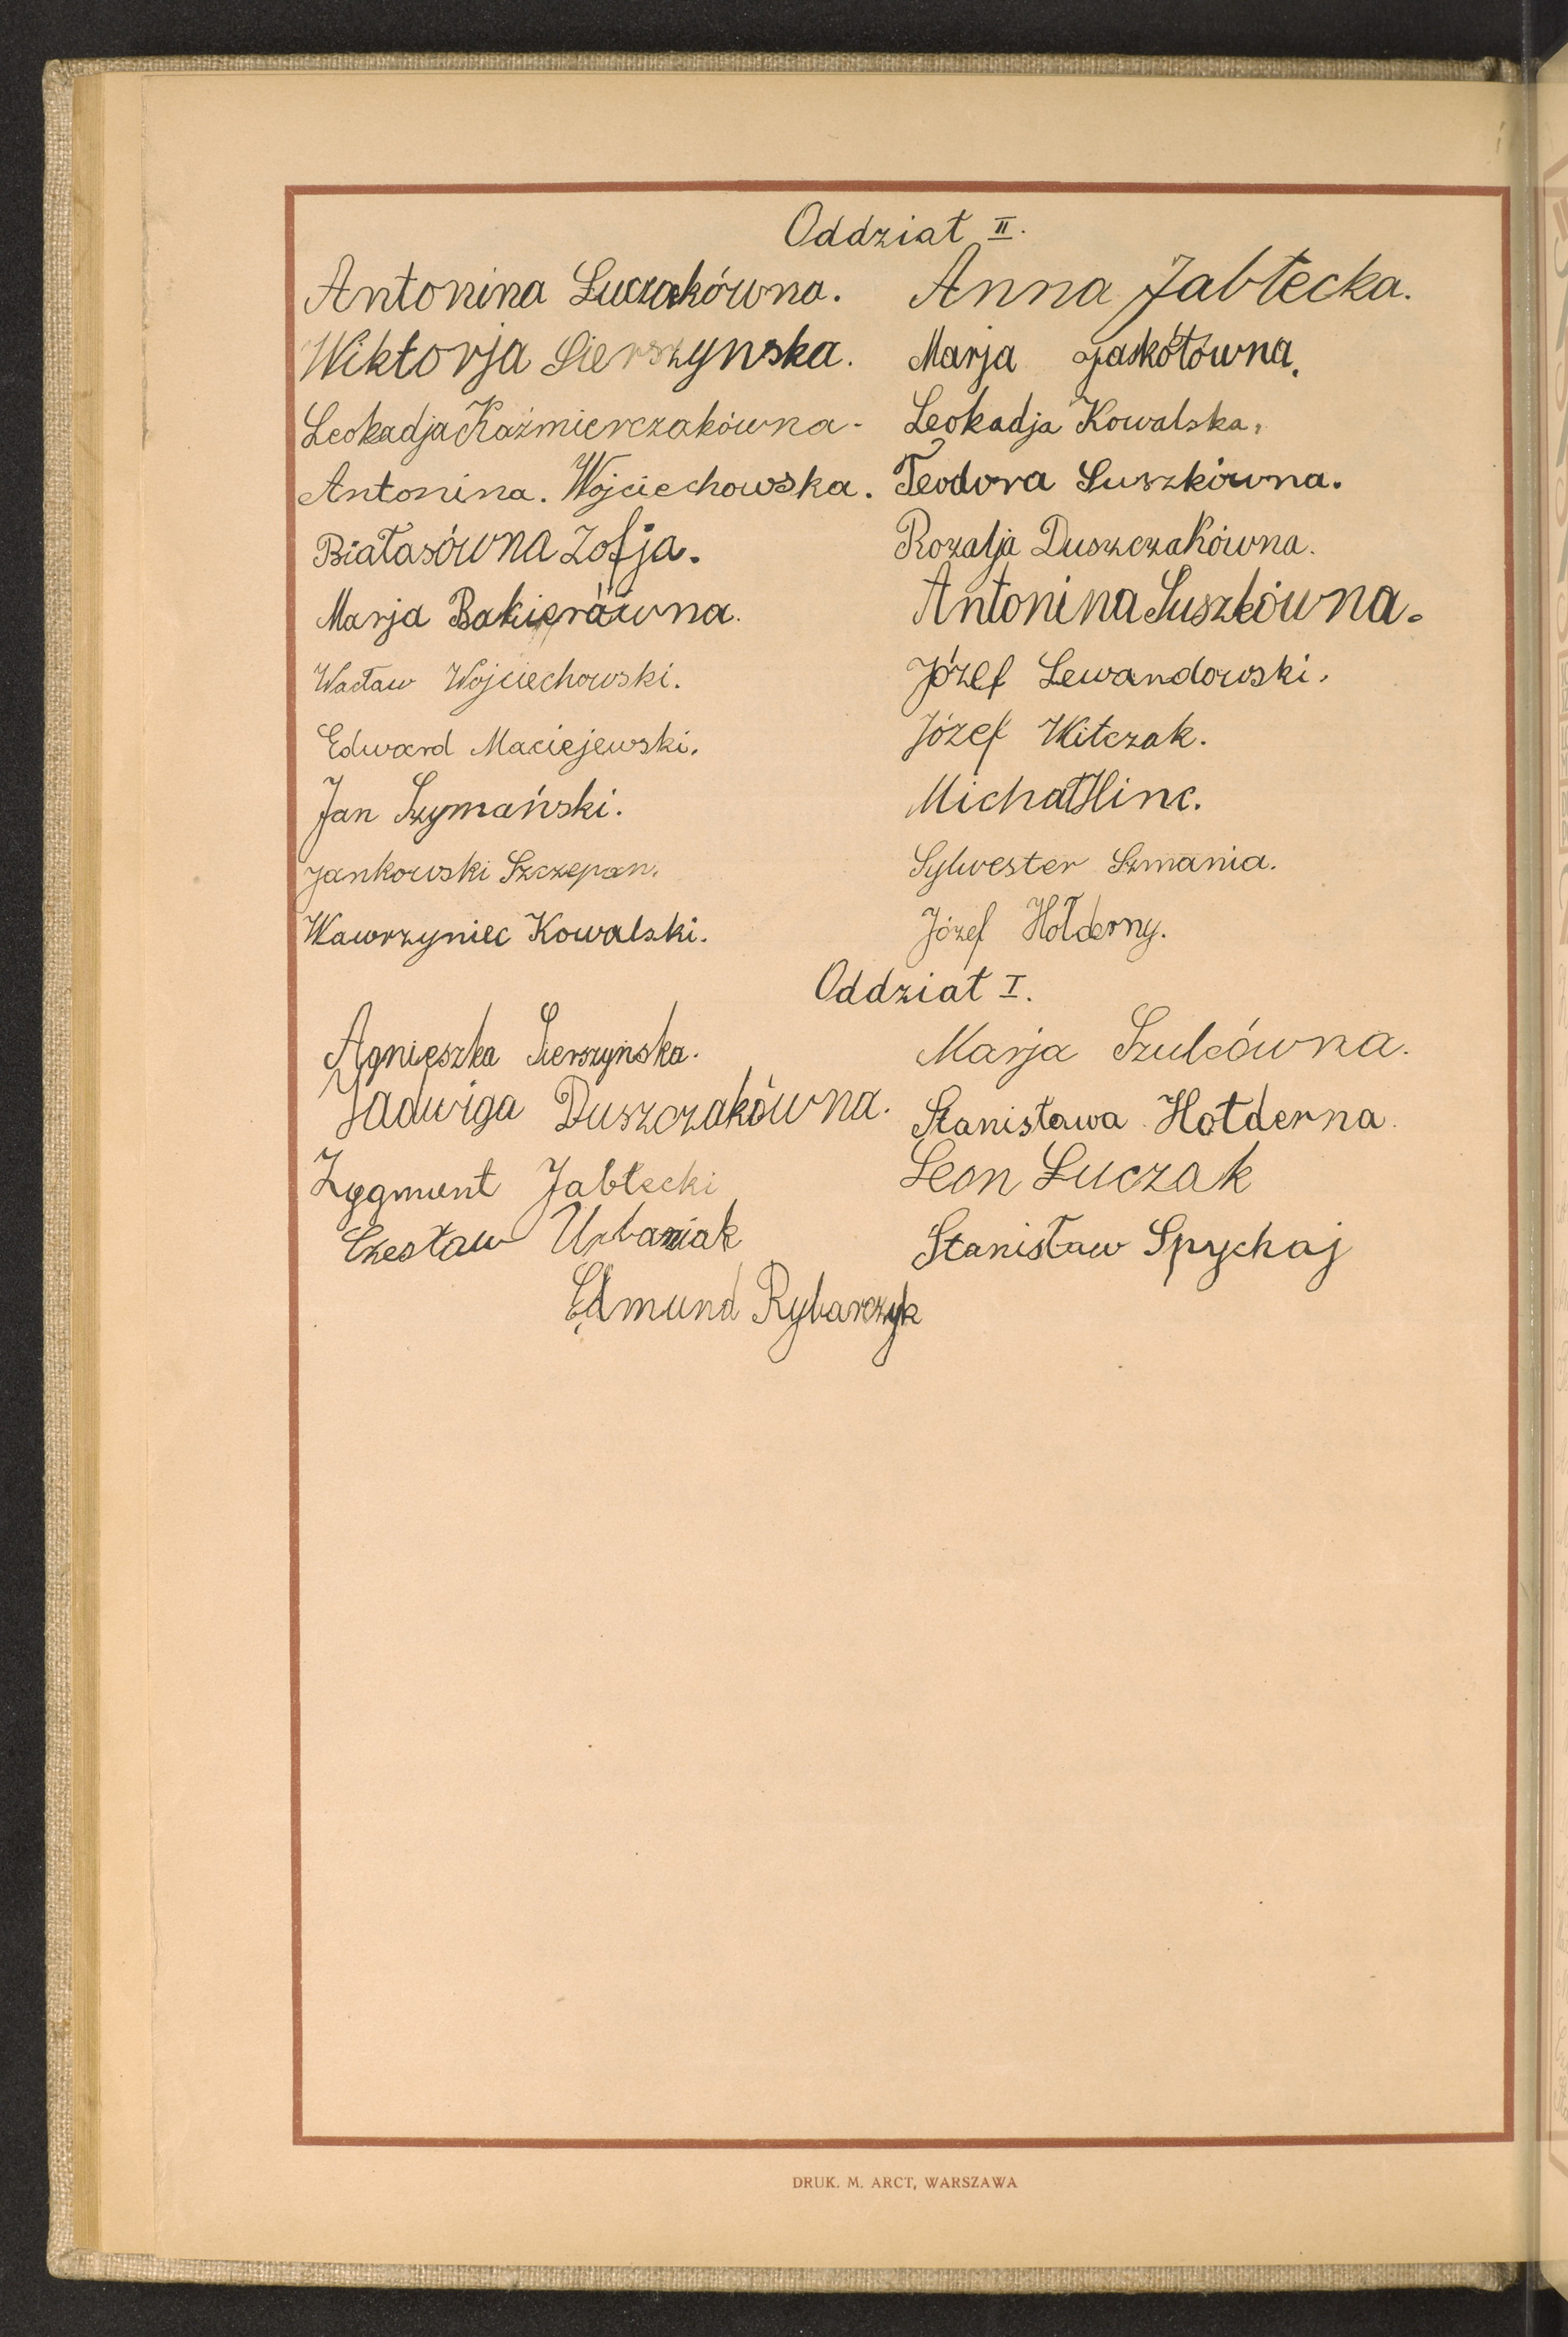 Oddział II.
Antonina Luczakówna. Anna Jabłecka.
Wiktorja Sierszynska. Marja Jaskółówna.
Leokadja Kaźmierczakówna. Leokadja Kowalska.
Antonina. Wojciechowska. Teodora Suszkówna.
Białasówna Zofja. Rozalja Duszczakówna.
Marja Bakierówna. Antonina Suszkówna.
Wacław Wojciechowski. Józef Lewandowski.
Edward Maciejewski. Józef Witczak.
Jan Szymański. Michał Hinc.
Jankowski Szczepan. Sylwester Szmania.
Wawrzyniec Kowalski. Józef Hołderny.
Oddział I.
Agnieszka Sierszyńska. Marja Szulcówna.
Jadwiga Duszczakówna. Stanisława Hołderna.
Zygmunt Jabłecki Leon Luczak
Czesław Urbaniak Stanisław Spychaj
Edmund Rybarczyk
DRUK. M. ARCT, WARSZAWA